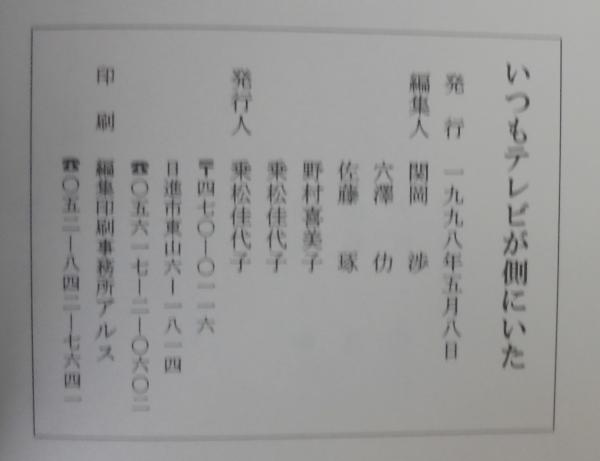 いつもテレビが側にいた
発行 一九九八年五月八日
編集人 関岡 渉
穴澤 仂
佐藤 琢
野村喜美子
乗松佳代子
発行人 乗松佳代子
〒四七〇―〇一一六
日進市東山六―一八一四
☎〇五六一七―二―〇六〇二
印刷 編集印刷事務所アルス
☎〇五二―八四二―七六四一